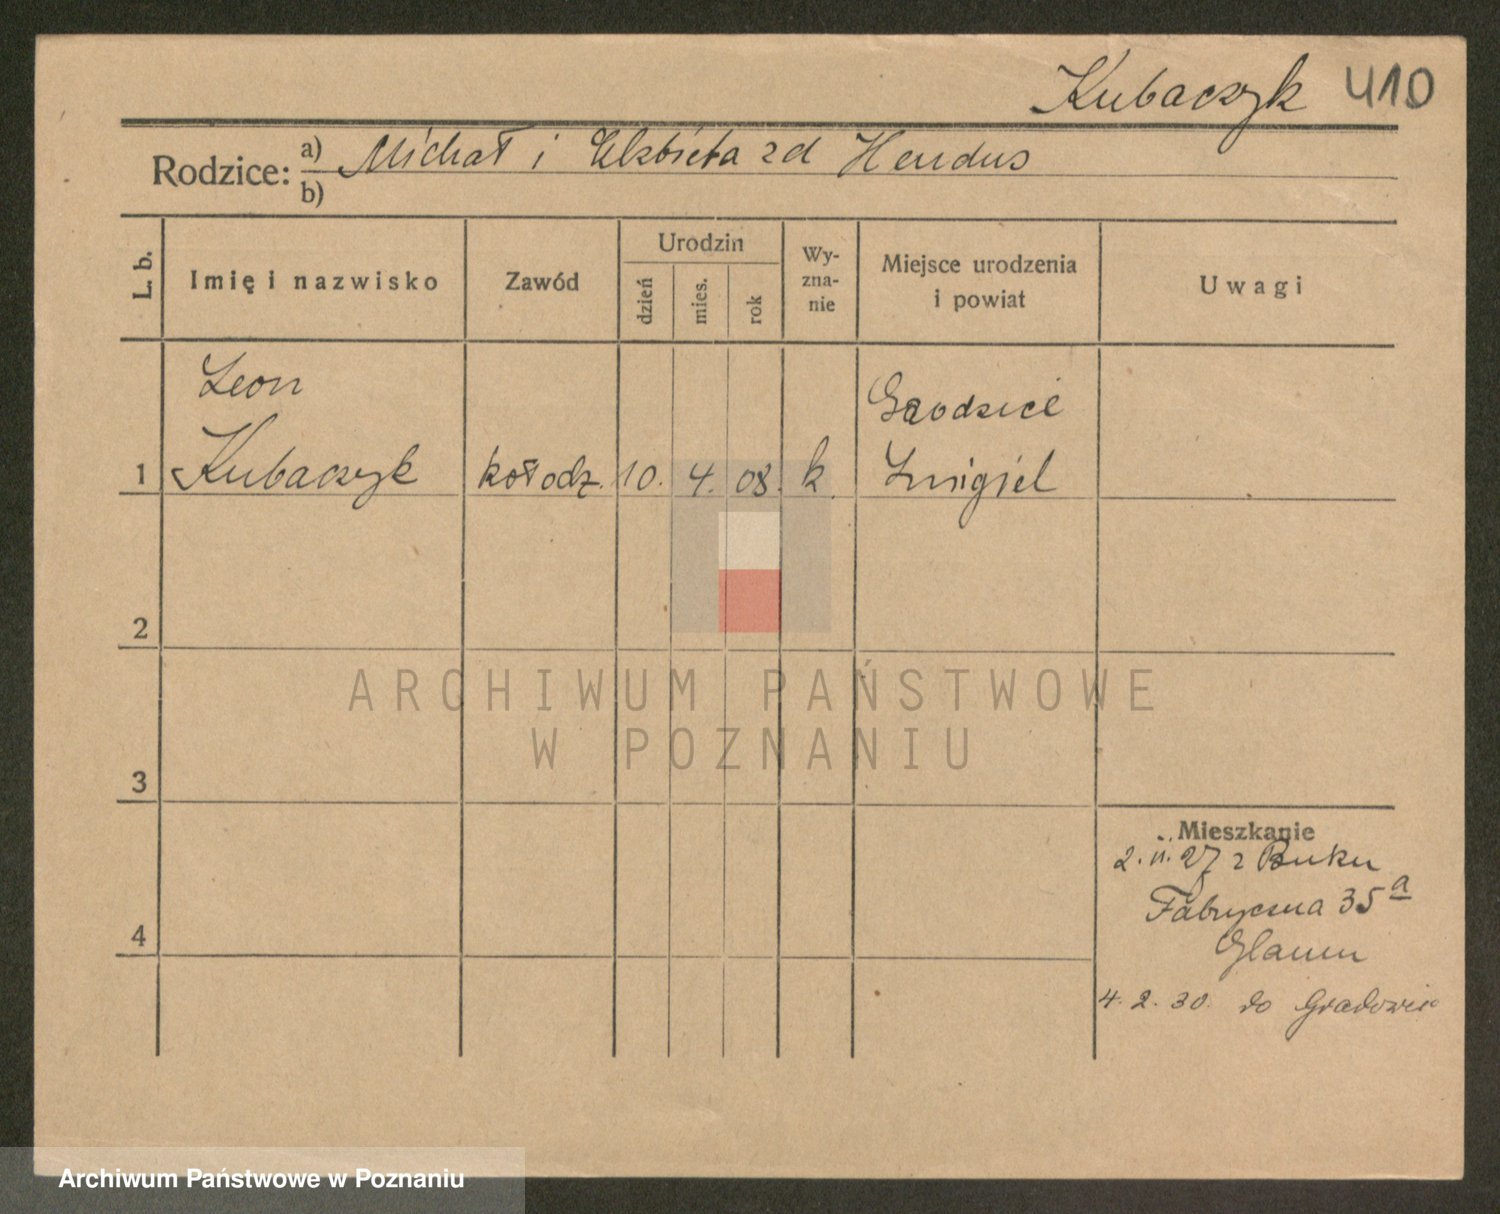 Kubaczyk 410
Rodzice: a) Michał i Elżbieta zd Hendus
b)
L. b.
Imię i nazwisko
Zawód
Urodzin
dzień
mies.
rok
Wy-
zna-
nie
Miejsce urodzenia
i powiat
Uwagi
Leon
Kubaczyk
1
kołodz.
10.
4.
08.
k.
Śmigiel
2
3
4
Mieszkanie
2. 11. 27 z Buku
Fabryczna 35a
4. 2. 30. do
ARCHIWUM PAŃSTWOWE
W POZNANIU
Archiwum Państwowe w Poznaniu